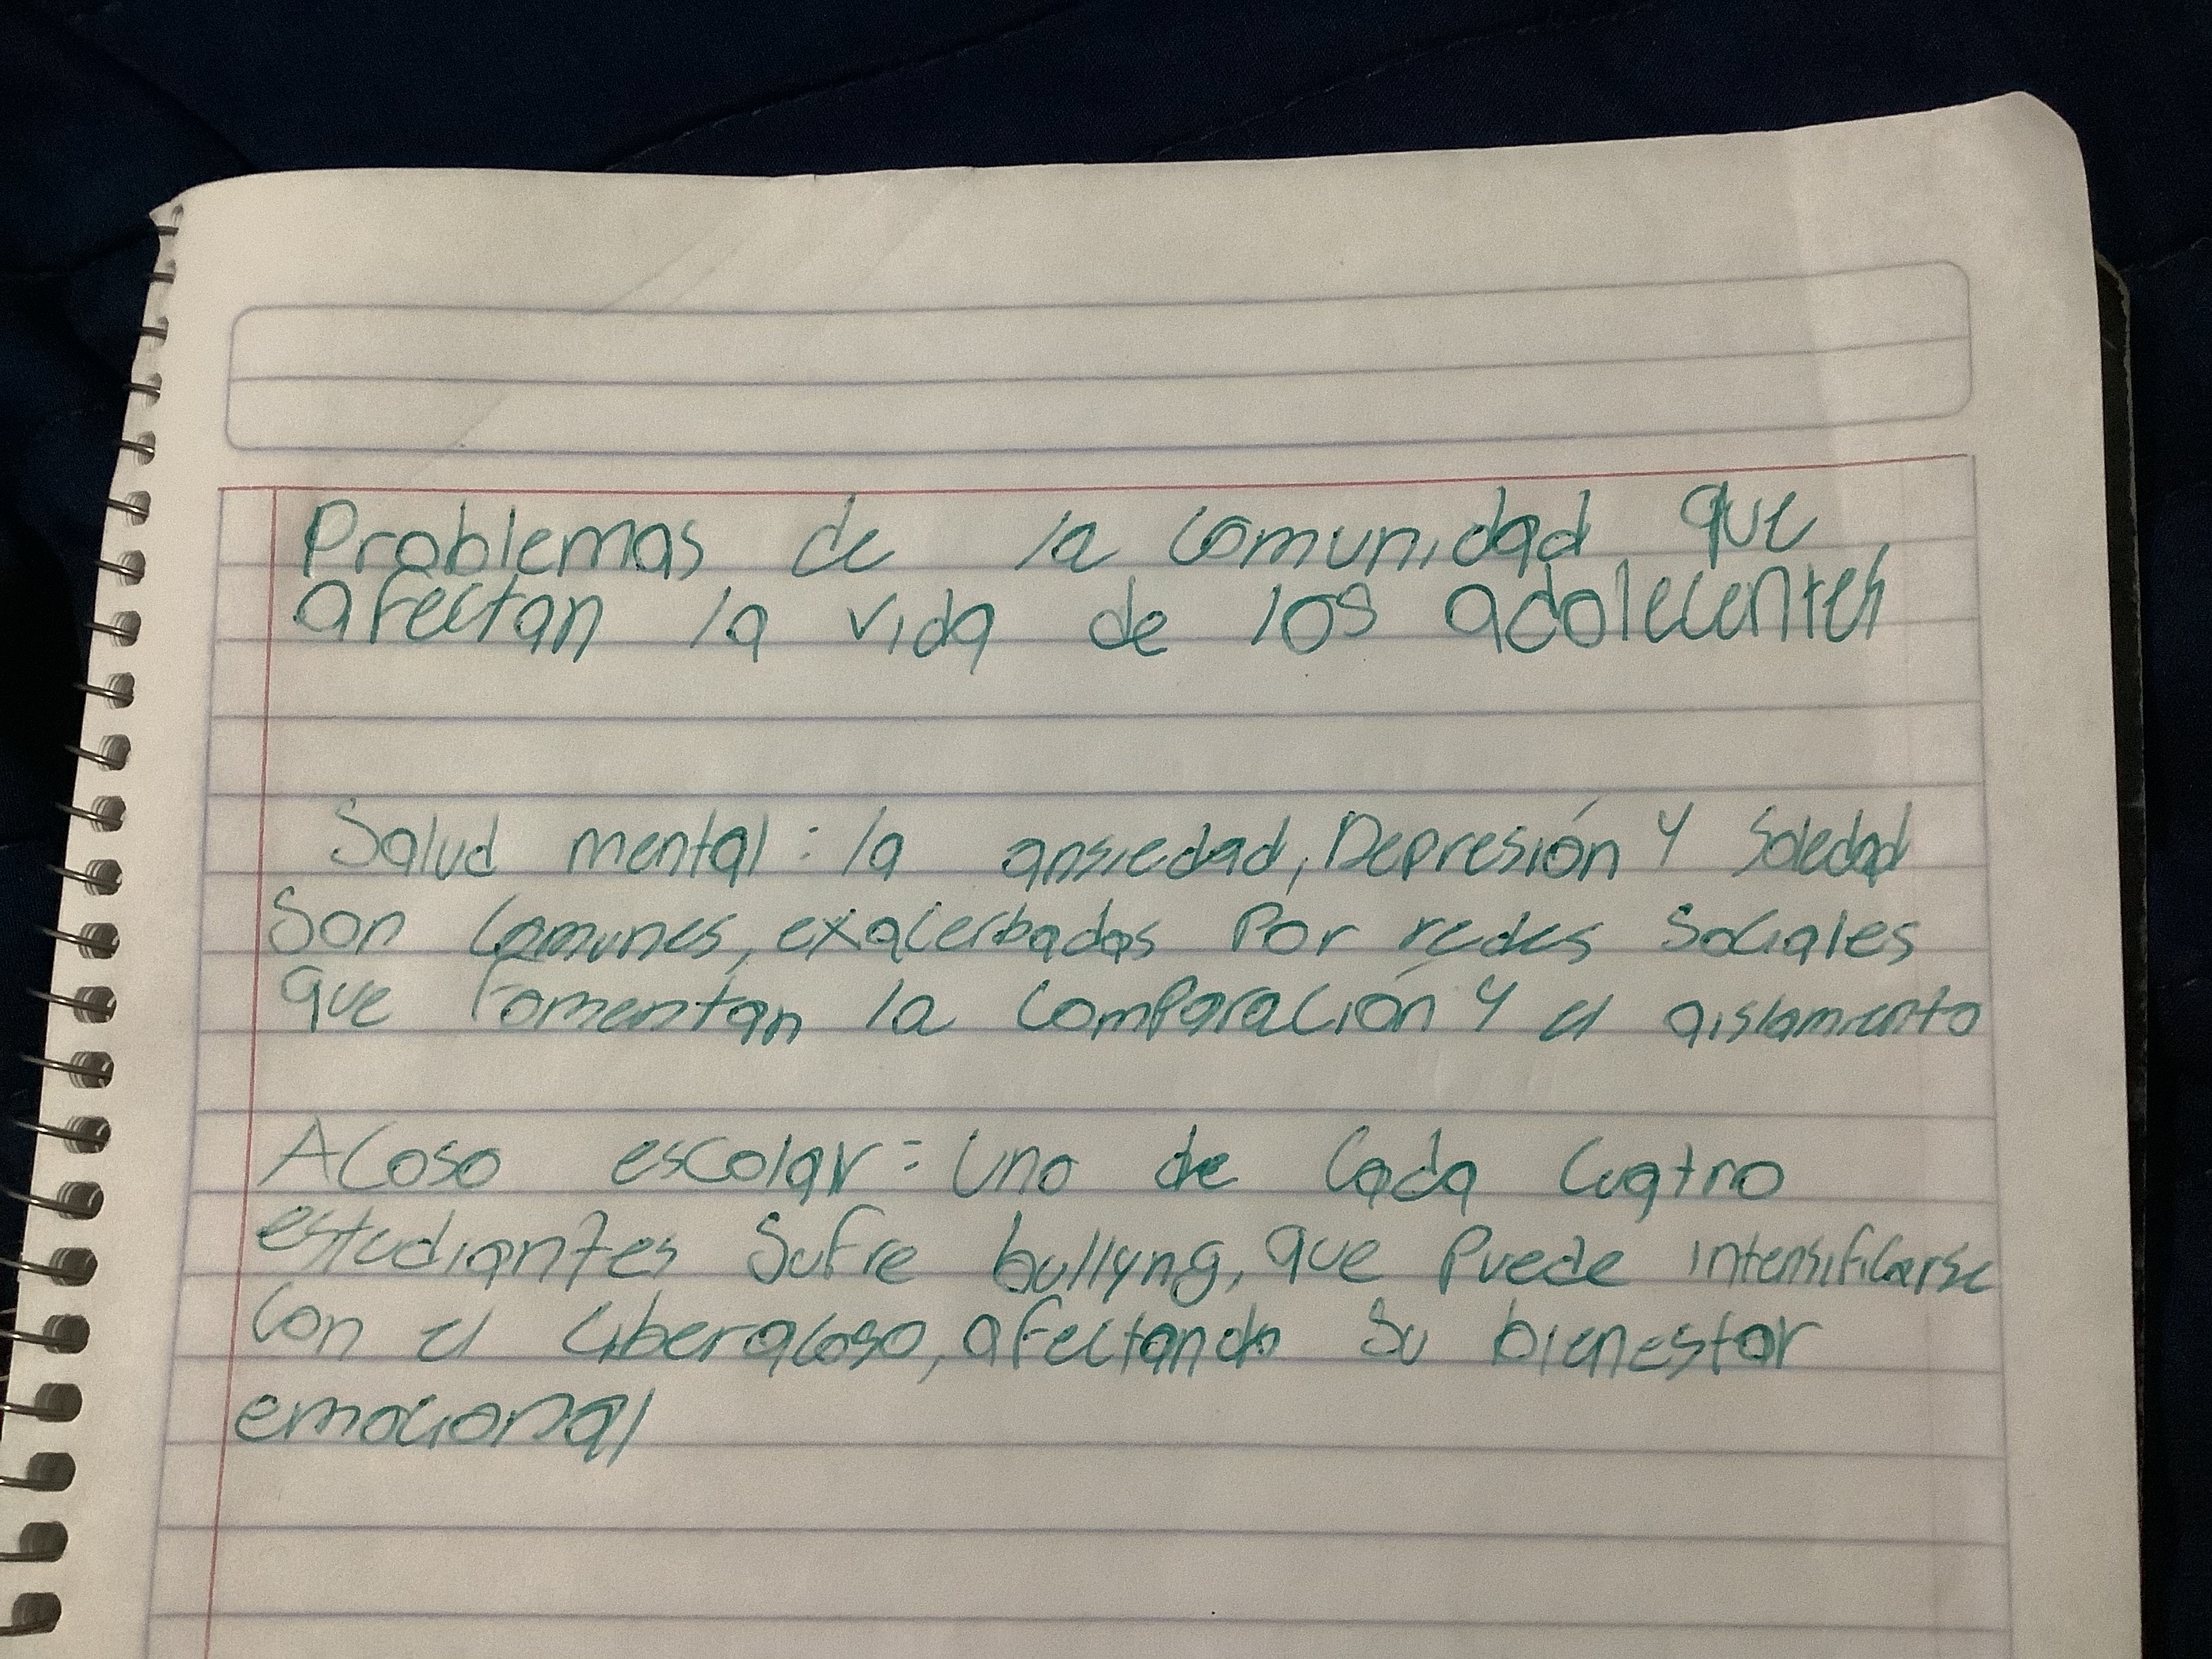 Problemas de la comunidad que
afectan la vida de los adolecentes
Salud mental: la ansiedad, Depresión y Soledad
Son comunes, exacerbados Por redes Sociales
que Fomentan la comparación y el aislamiento
Acoso escolar: Uno de cada cuatro
estudiantes sufre bullyng, que Puede intensificarse
con el ciberacoso, afectando su bienestar
emocional